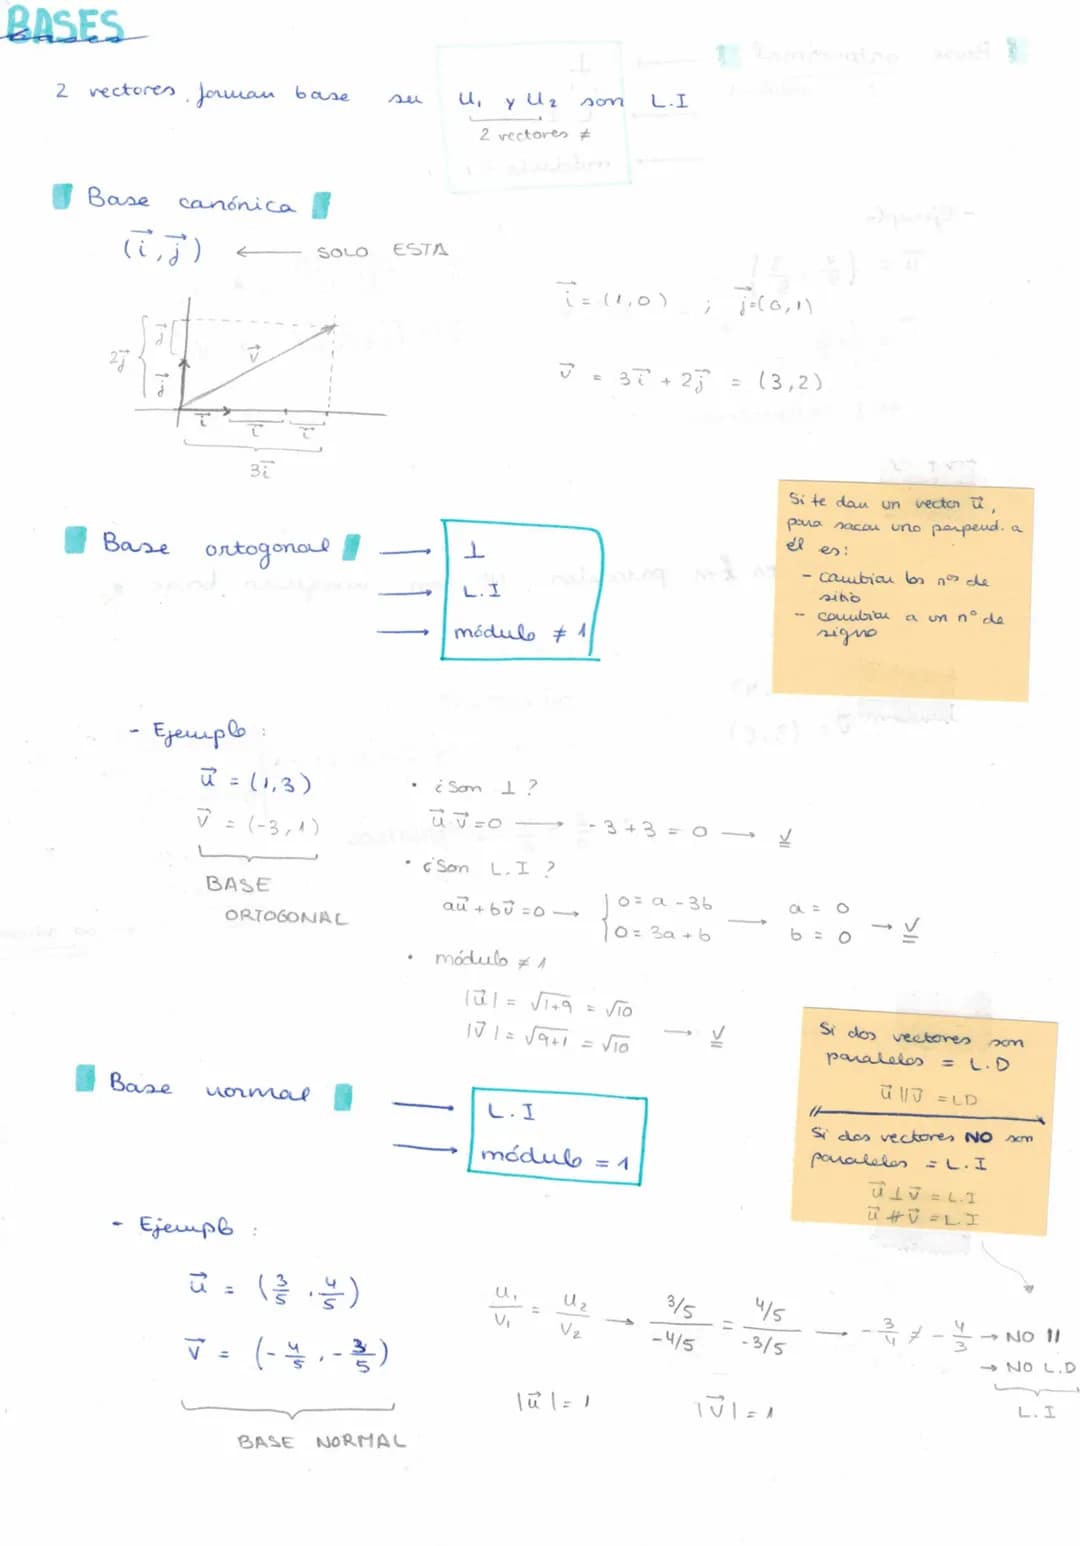 BASES
2 vectores forman base su u₁ y u₂ son L.I
2 vectores ≠
Base canónica
(i⃗, j⃗) ← SOLO ESTA
i⃗ = (1,0) ; j⃗=(0,1)
2j⃗ j⃗ j⃗ v⃗
v⃗ = 3i⃗ + 2j⃗ = (3,2)
i⃗ i⃗ i⃗
3i⃗
Si te dan un vector u⃗,
para sacar uno perpend. a
él es:
- cambiar los nºs de
sitio
- cambiar a un nº de
signo
Base ortogonal → ⊥
→ L.I
→ módulo ≠ 1
- Ejemplo :
u⃗ = (1,3)
v⃗ = (-3,1)
BASE
ORTOGONAL
• ¿Son ⊥ ?
u⃗·v⃗=0 → -3+3 = 0 → ✓
• ¿Son L.I ?
au⃗ + bv⃗ = 0 → { 0 = a - 3b
0 = 3a + b → a = 0
b = 0 → ✓
• módulo ≠ 1
|u⃗| = √1+9 = √10
|v⃗| = √9+1 = √10 → ✓
Si dos vectores son
paralelos = L.D
u⃗ || v⃗ = LD
Si dos vectores NO son
paralelos = L.I
u⃗ ⊥ v⃗ = L.I
u⃗ ∦ v⃗ = L.I
Base normal → L.I
→ módulo = 1
- Ejemplo :
u⃗ = (3/5, 4/5)
v⃗ = (-4/5, -3/5)
BASE NORMAL
u₁/v₁ = u₂/v₂ → 3/5 / -4/5 = 4/5 / -3/5 → -3/4 ≠ -4/3 → NO ||
→ NO L.D
L.I
|u⃗| = 1 |v⃗| = 1